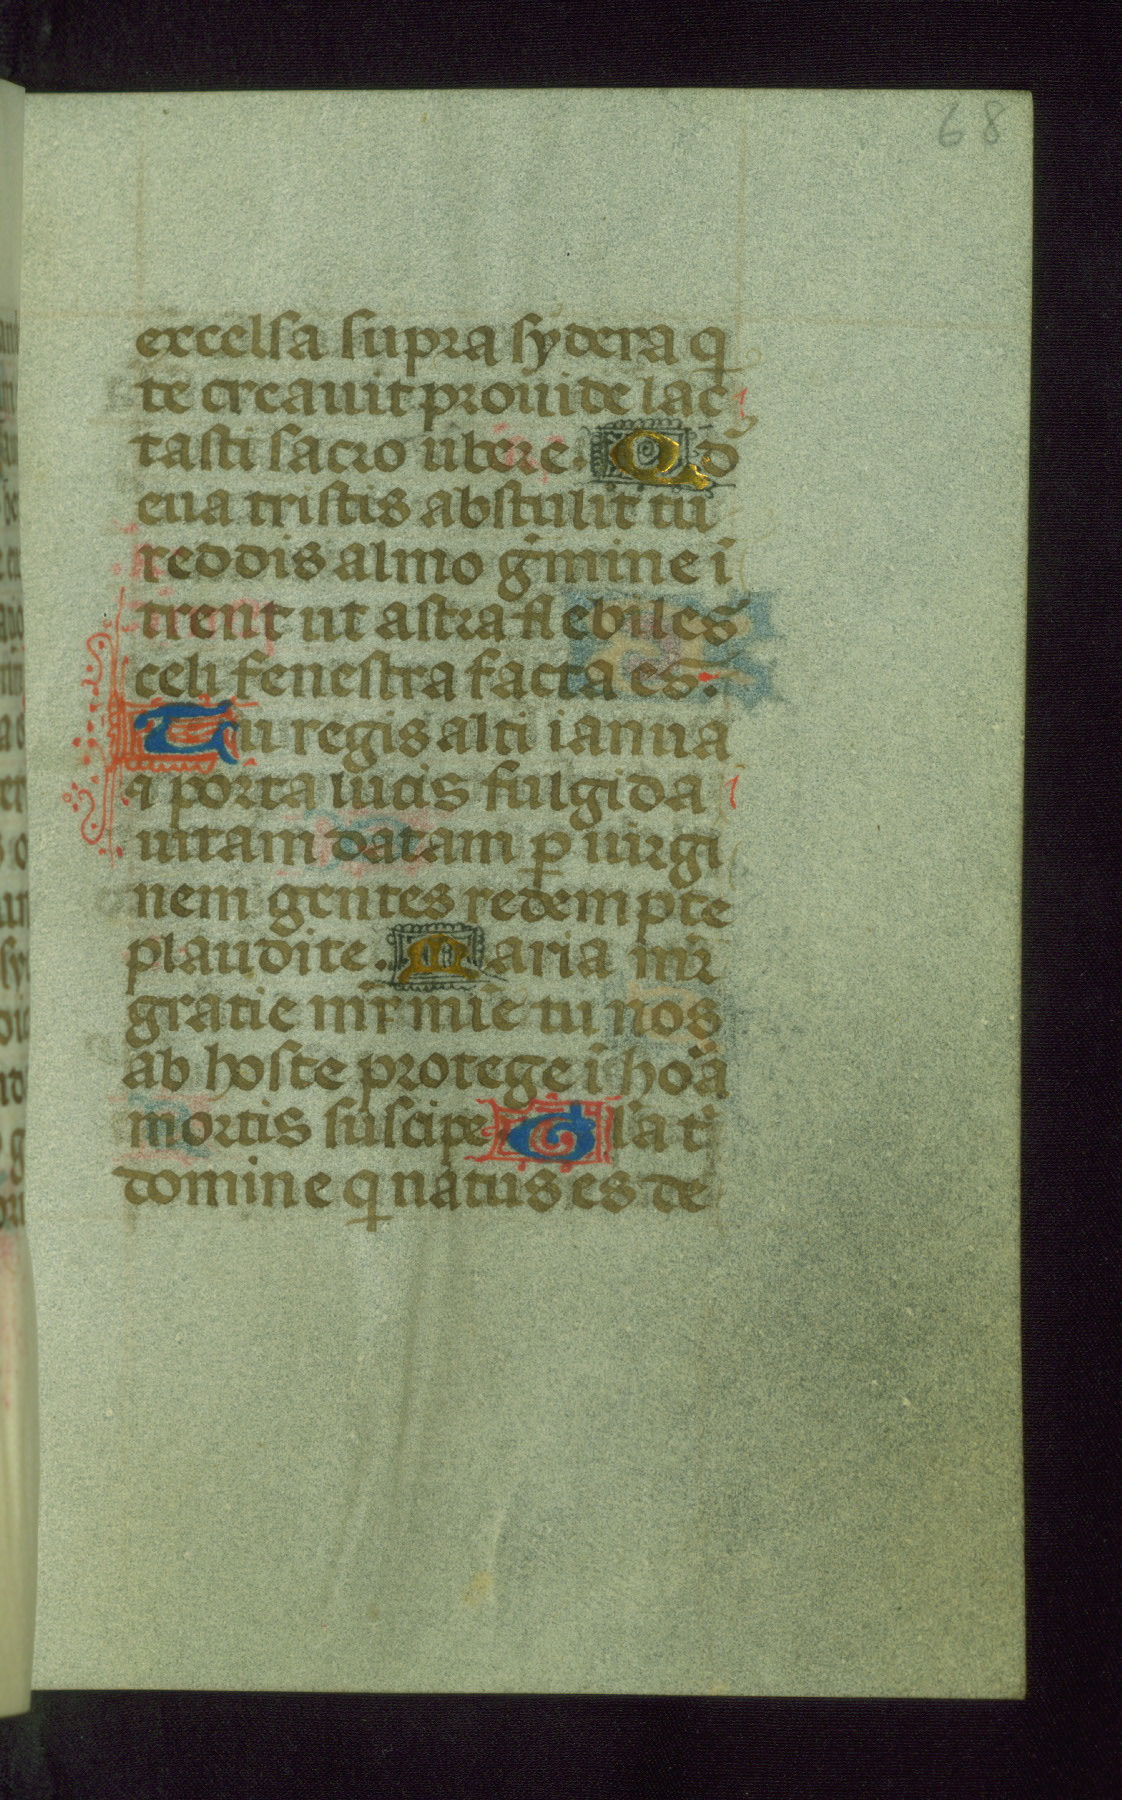 68
excelsa supra sydera q
te creauit prouide lac
tasti sacro ubere. Q d̄
eua tristis abstulit tu
reddis almo g̃mine ī
trent ut astra flebiles
celi fenestra facta es.
Tu regis alti ianua
⁊ porta lucis fulgida
uitam datam ꝑ uirgi
nem gentes redempte
plaudite. Maria mr̄
gratie mr̄ mīe tu nos
ab hoste protege ī hoā
mortis suscipe Gl'a t'
domine q natus es de